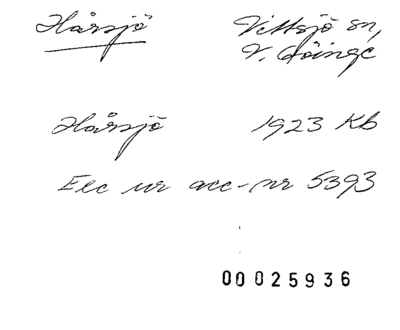 Hårsjö Vittsjö sn,
V. Göinge
Hårsjö 1923 Kb
Exc ur acc-nr 5393
00025936